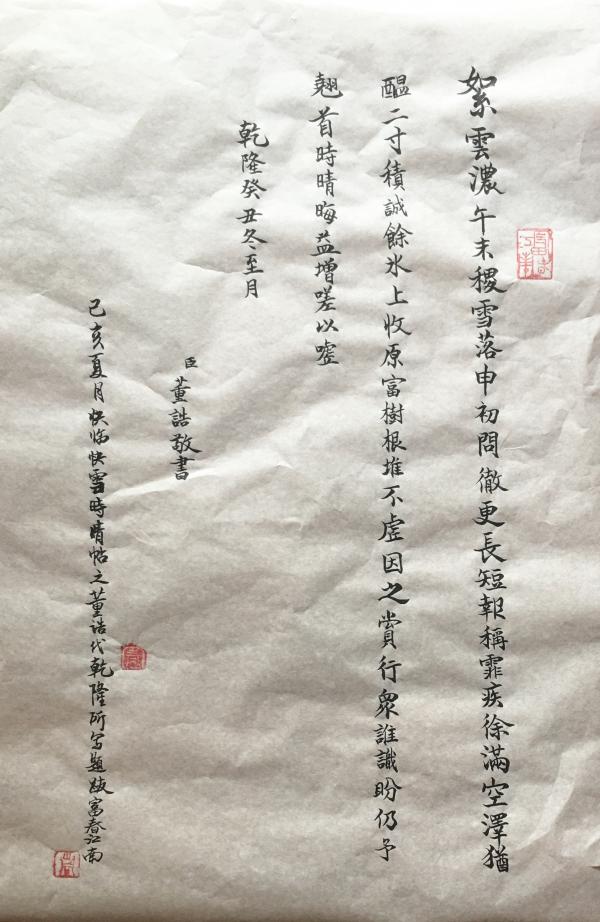 絮雲濃午末稷雪落申初問徹更長短報稱霏疾徐滿空澤猶
醖二寸積誠餘氷上收原富樹根堆不虛因之賞行衆誰識盼仍予
翹首時晴晦益增嗟以噓
乾隆癸丑冬至月
臣董誥敬書
己亥夏月快臨快雪時晴帖之董誥代乾隆所寫題跋富春江南